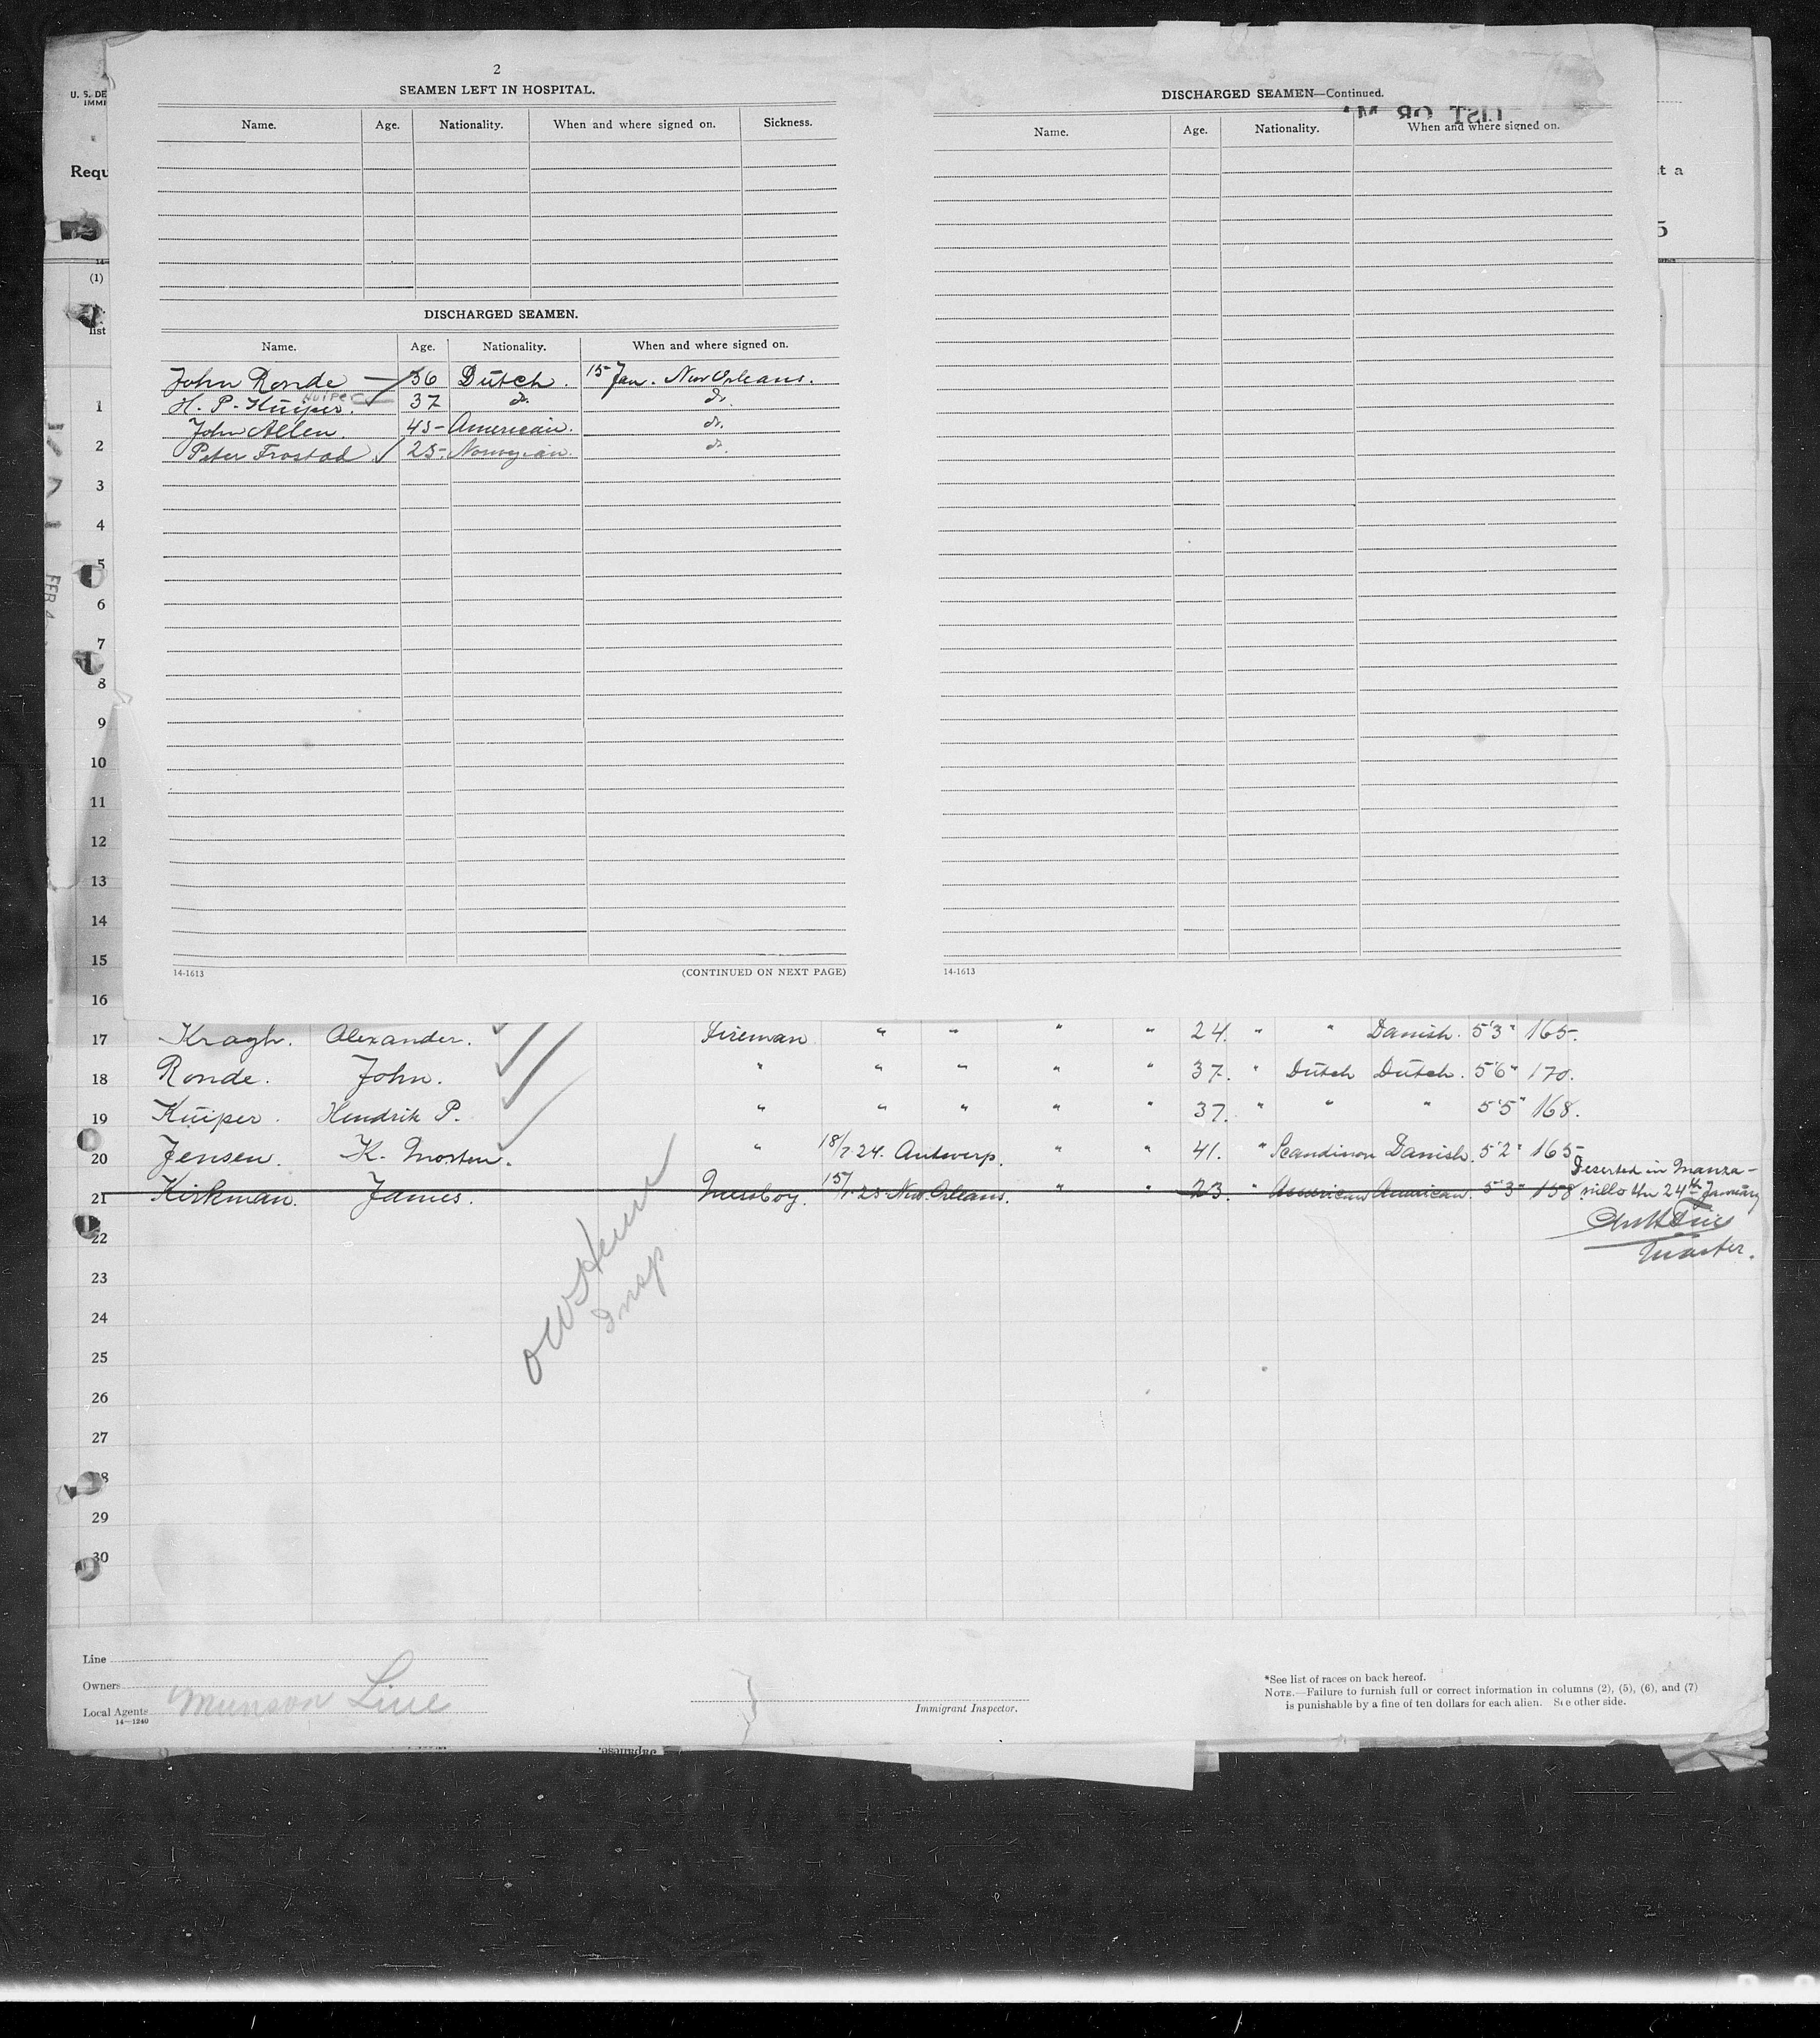 2
SEAMEN LEFT IN HOSPITAL.
Name. Age. Nationality. When and where signed on. Sickness.
DISCHARGED SEAMEN.
Name. Age. Nationality. When and where signed on.
John Ronde 36 Dutch. 15 Jan. New Orleans.
H. P. Kuiper. Kuiper 37 do. do.
John Allen. 45 American. do.
Peter Frostad 25 Norwegian. do.
14-1613 (CONTINUED ON NEXT PAGE)
DISCHARGED SEAMEN—Continued.
LIST OR
Name. Age. Nationality. When and where signed on.
14-1613
U. S. DE
IMMI
Requ
t a
5
(1)
list
FEB 4
1
2
3
4
5
6
7
8
9
10
11
12
13
14
15
16
17 Kragh. Alexander. Fireman " " " " 24. " " Danish. 5'3" 165.
18 Ronde. John. " " " " " 37. " Dutch Dutch. 5'6" 170.
19 Kuiper. Hendrik P. " " " " " 37. " " " 5'5" 168.
20 Jensen. K. Morten. " 18/7 24. Antwerp. " " 41. " Scandinav Danish. 5'2" 165
21 Kirkman. James. Messboy. 15/1-25 New Orleans. " " 23. " American American. 5'3" 158
Deserted in Manza-
nillo the 24th January
Master.
22
23
24
25
26
27
28
29
30
Insp
Line
Owners
Local Agents Munson Line
14—1240
Immigrant Inspector.
*See list of races on back hereof.
NOTE.—Failure to furnish full or correct information in columns (2), (5), (6), and (7)
is punishable by a fine of ten dollars for each alien. See other side.